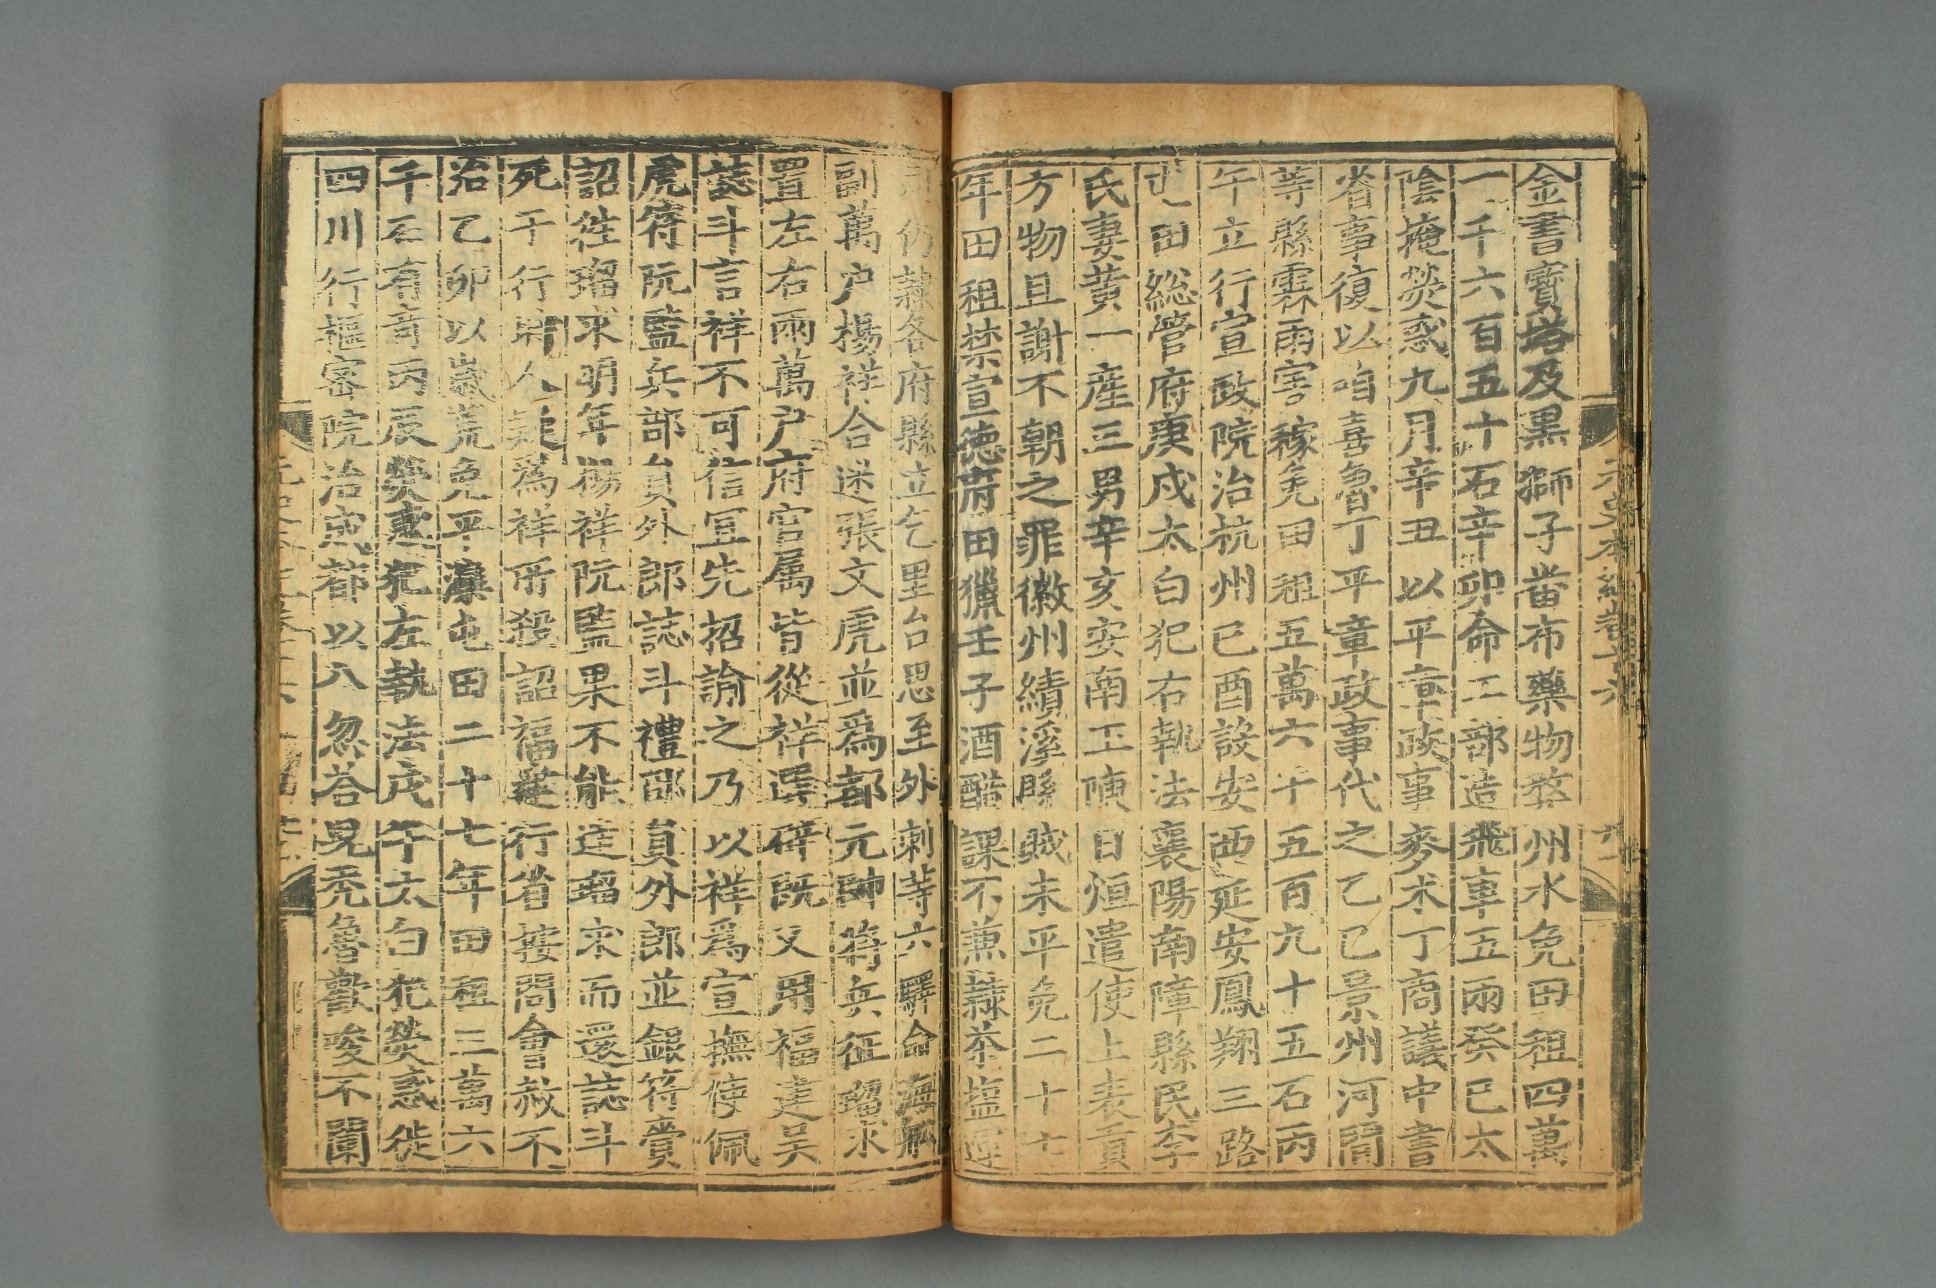 金書寶塔及黑獅子番布藥物婺州水免田租四萬
一千六百五十石辛卯命工部造飛車五兩癸巳太
陰掩熒惑九月辛丑以平章政事麥朮丁商議中書
省事復以咱喜魯丁平章政事代之乙巳景州河間
等縣霖雨害稼免田租五萬六千五百九十五石丙
午立行宣政院治杭州己酉設安西延安鳳翔三路
屯田總管府庚戌太白犯右執法襄陽南漳縣民李
氏妻黃一産三男辛亥安南王陳日烜遣使上表貢
方物且謝不朝之罪徽州績溪縣賊未平免二十七
年田租禁宣德府田獵壬子酒醋課不兼隷茶塩運
司仍隷各府縣立乞里台思至外剌等六驛命海舡
副萬户楊祥合迷張文虎並爲都元帥將兵征瑠求
置左右兩萬户府官属皆從祥選辟既又用福建吴
誌斗言祥不可信宜先招諭之乃以祥爲宣撫使佩
虎符阮監兵部員外郎誌斗禮部員外郎並銀符賫
詔徃瑠求明年楊祥阮監果不能達瑠求而還誌斗
死于行時人疑爲祥所殺詔福建行省按問會赦不
治乙卯以歲荒免平灤屯田二十七年田租三萬六
千石有竒丙辰熒惑犯左執法戊午太白犯熒惑徙
四川行樞密院治成都以八忽荅兒秃魯歡唆不闌